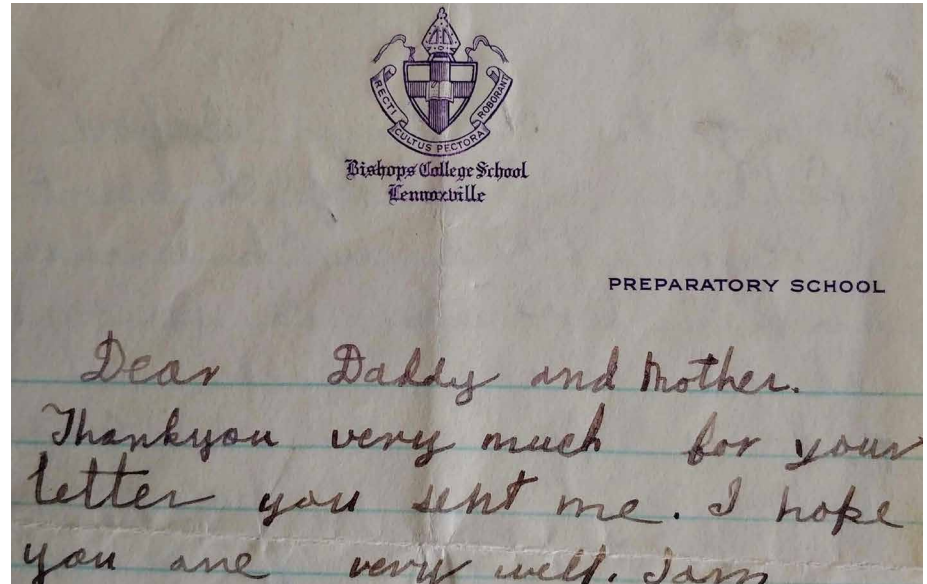 RECTI CULTUS PECTORA ROBORANT
Bishops College School
Lennoxville
PREPARATORY SCHOOL
Dear Daddy and Mother.
Thankyou very much for your
letter you sent me. I hope
you are very well. I am